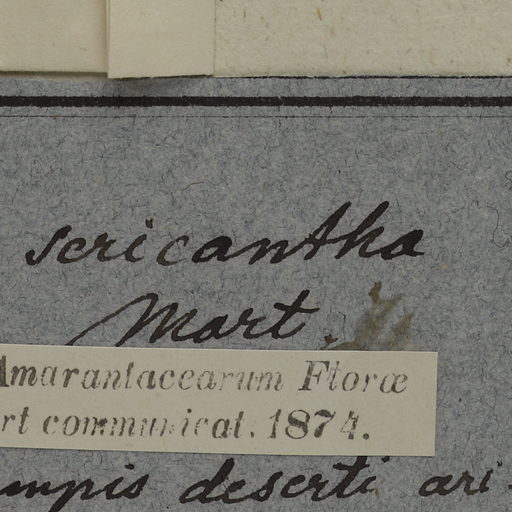 sericantha
Mart.
Amarantacearum Floræ
rt communicat. 1874.
mpis deserti ari-